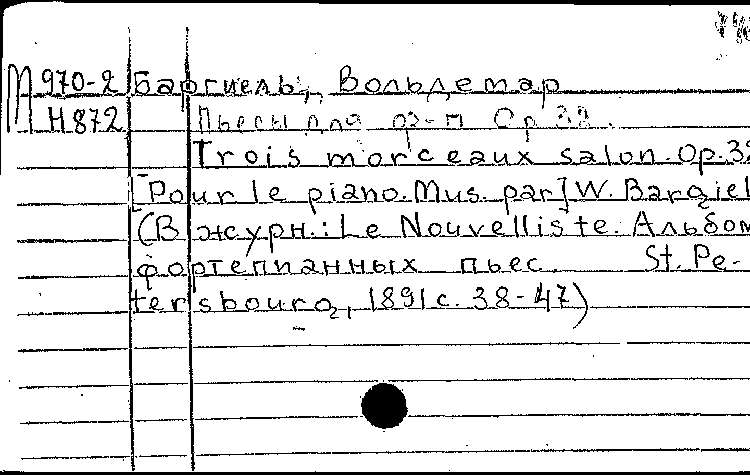 М 970-2 Баргиель, Вольдемар
Н872 Пьесы для ф-п Ор 32.
Trois morceaux salon. Op. 32
[Pour le piano. Mus. par] W. Bargiel
(В журн.: Le Nouvelliste. Альбом
фортепианных пьес. St. Pe-
tersbourg, 1891 с. 38-47)